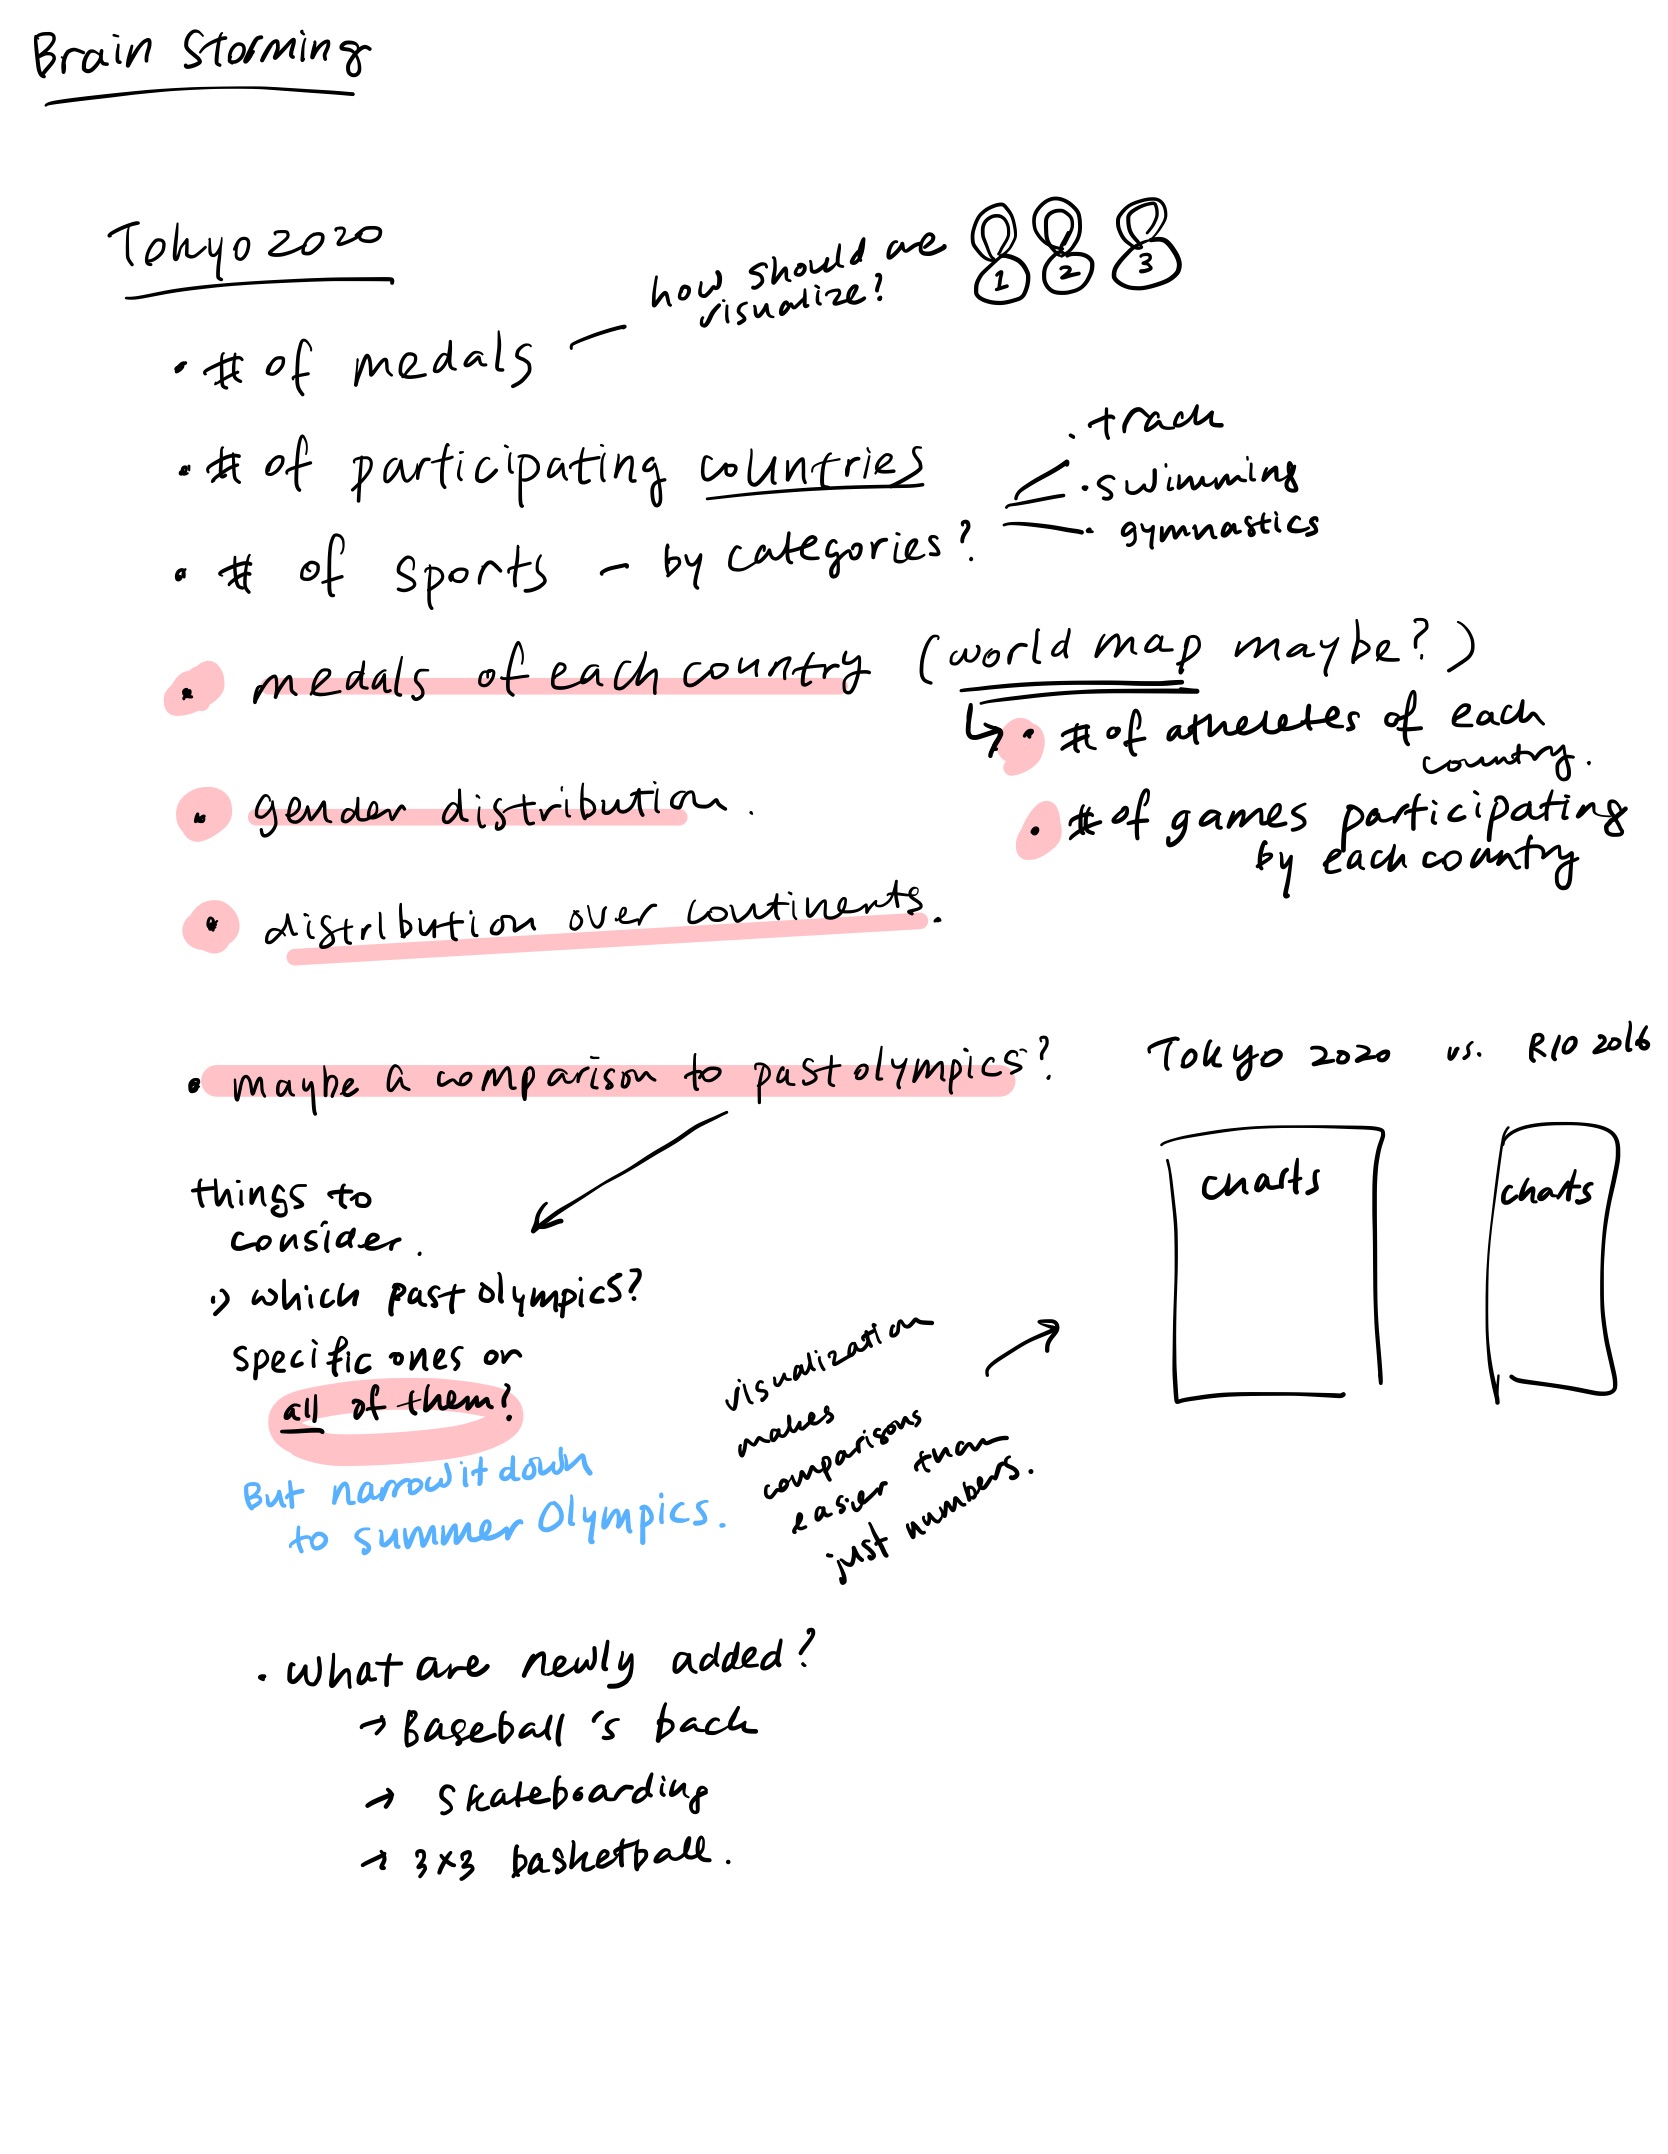 Brain Storming
Tokyo 2020
how should we
visualize?
1 2 3
• # of medals
• # of participating countries
• # of sports - by categories?
• track
• swimming
• gymnastics
• medals of each country (world map maybe?)
• # of atheletes of each
country.
• # of games participating
by each country
• gender distribution.
• distribution over continents.
• maybe a comparison to past olympics?
Tokyo 2020 vs. RIO 2016
charts
charts
things to
consider.
which past olympics?
specific ones or
all of them?
But narrow it down
to summer Olympics.
visualization
makes
comparisons
easier than
just numbers.
• What are newly added?
→ Baseball's back
→ Skateboarding
→ 3x3 basketball.